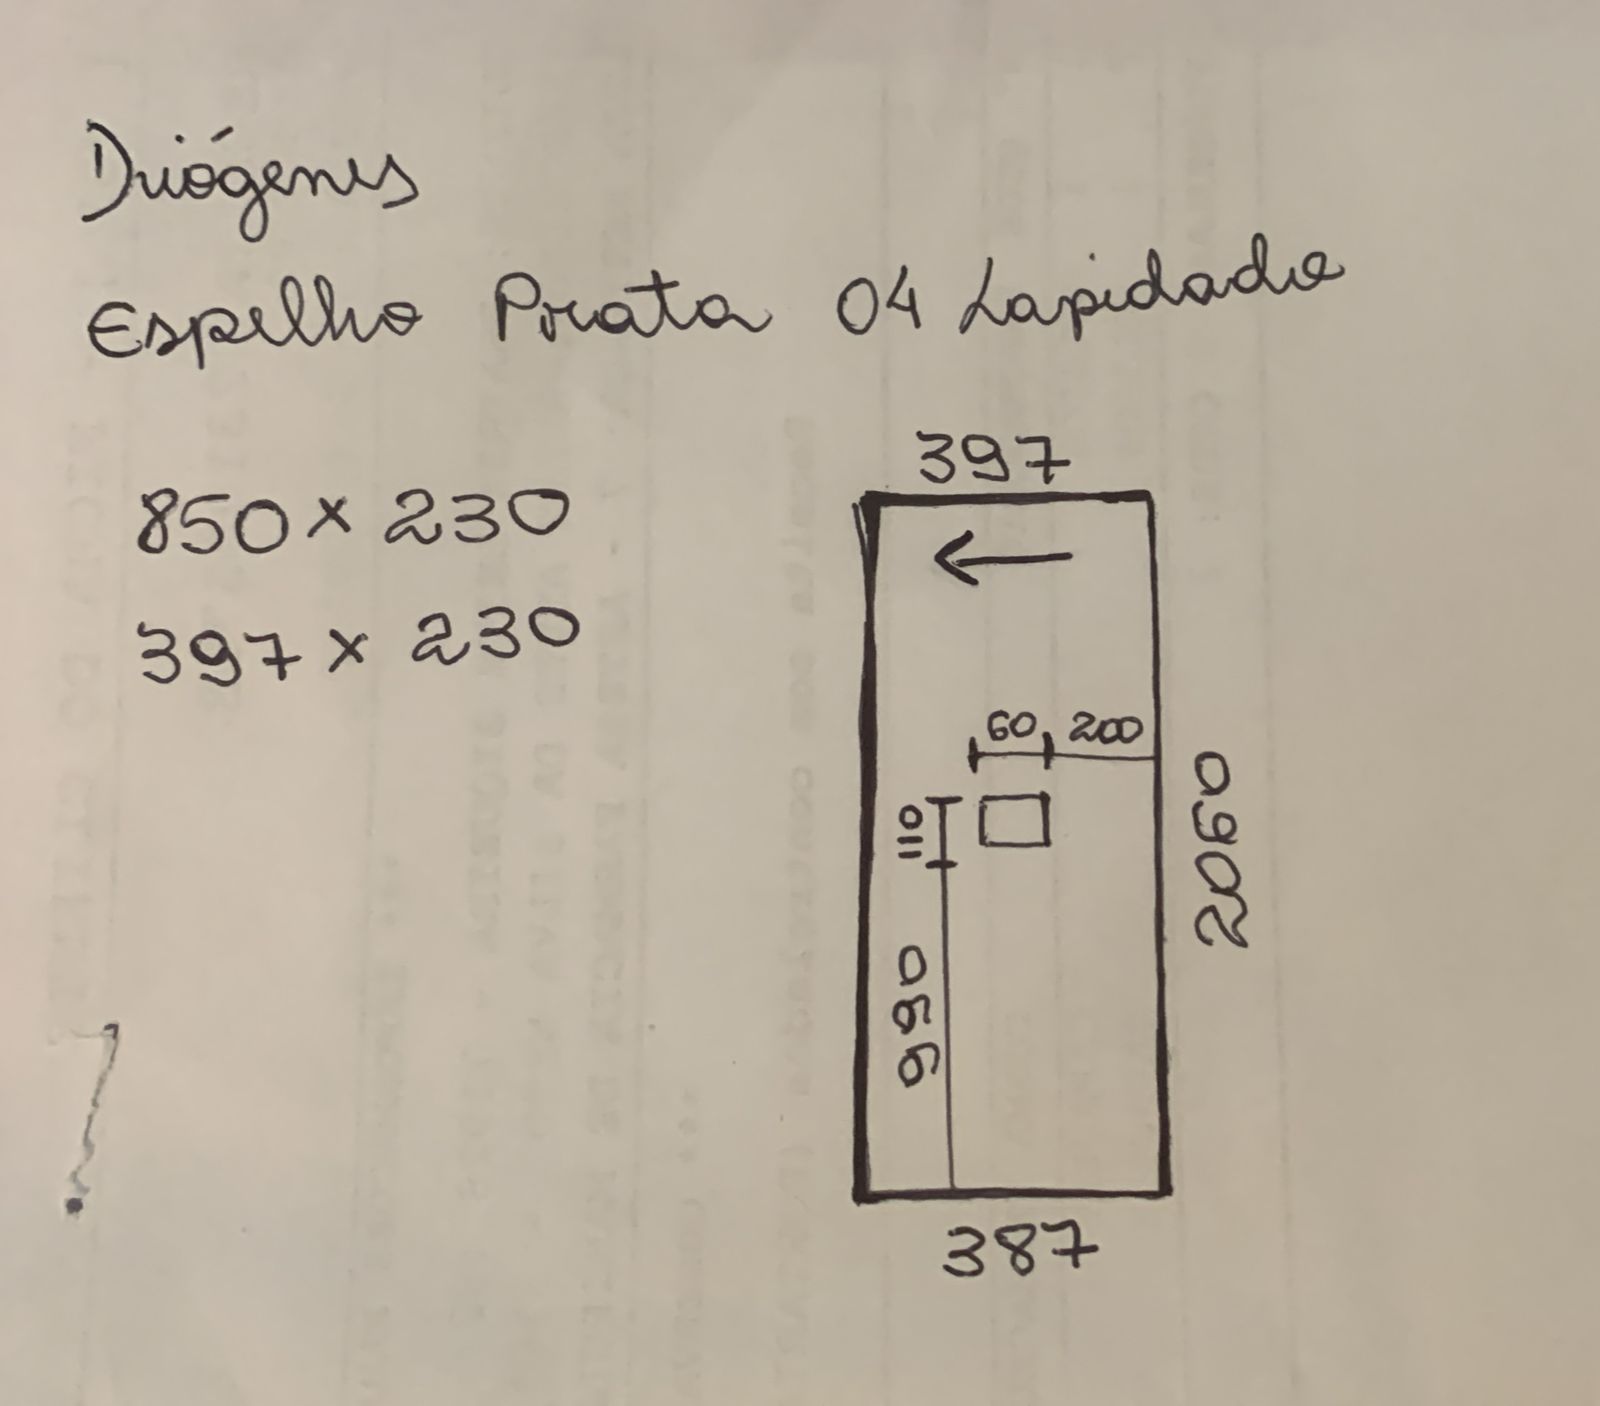 Diógenes
Espelho Prata 04 Lapidado
850 x 230
397 x 230
397
60 200
110
2060
990
387